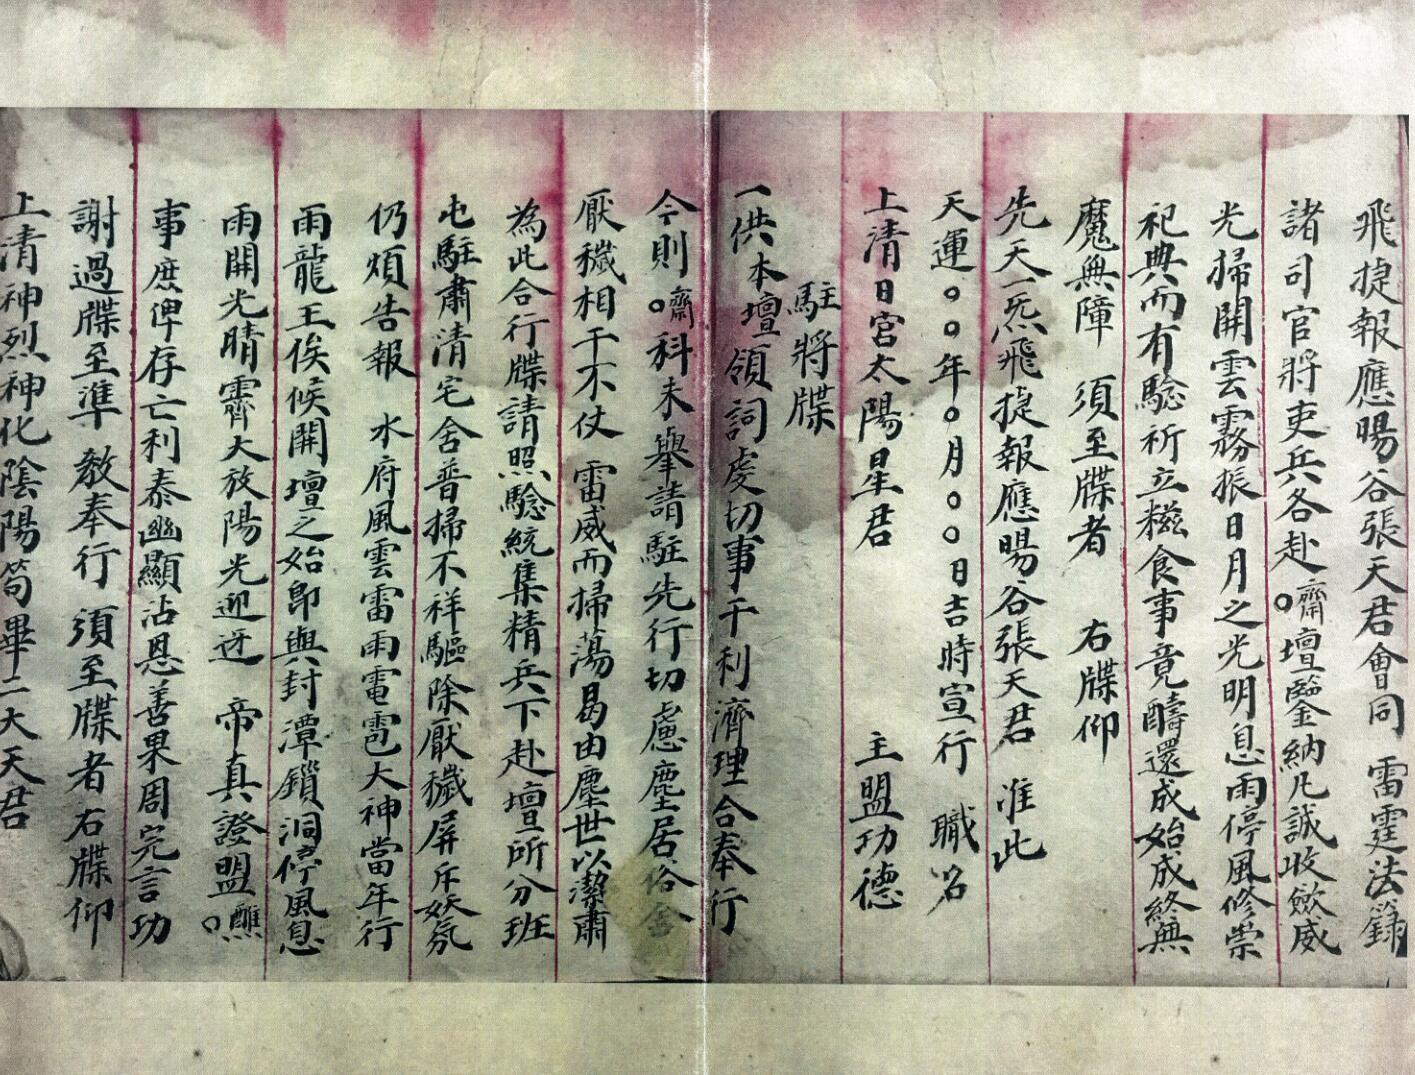 飛捷報應暘谷張天君會同 雷霆法籙
諸司官將吏兵各赴○齋壇鑒納凡誠收歛威
光掃開雲霧振日月之光明息雨停風修崇
祀典而有驗祈立糍食事竟醻還成始成終無
魔無障 須至牒者 右牒仰
先天一炁飛捷報應暘谷張天君 准此
天運○○年○月○○日吉時宣行 職名
上清日宮太陽星君 主盟功德
駐將牒
一供本壇領詞虔切事干利濟理合奉行
今則○齋科未舉請駐先行切慮塵居俗舍
厭穢相干不仗 雷威而掃蕩曷由塵世以潔肅
為此合行牒請照驗統集精兵下赴壇所分班
屯駐肅清宅舍普掃不祥驅除厭穢屏斥妖氛
仍煩告報 水府風雲雷雨電雹大神當年行
雨龍王俟候開壇之始即與封潭鎖洞停風息
雨開光晴霽大放陽光迎迓 帝真證盟○醮
事庶俾存亡利泰幽顯沾恩善果周完言功
謝過牒至準 教奉行 須至牒者 右牒仰
上清神烈神化陰陽苟畢二大天君